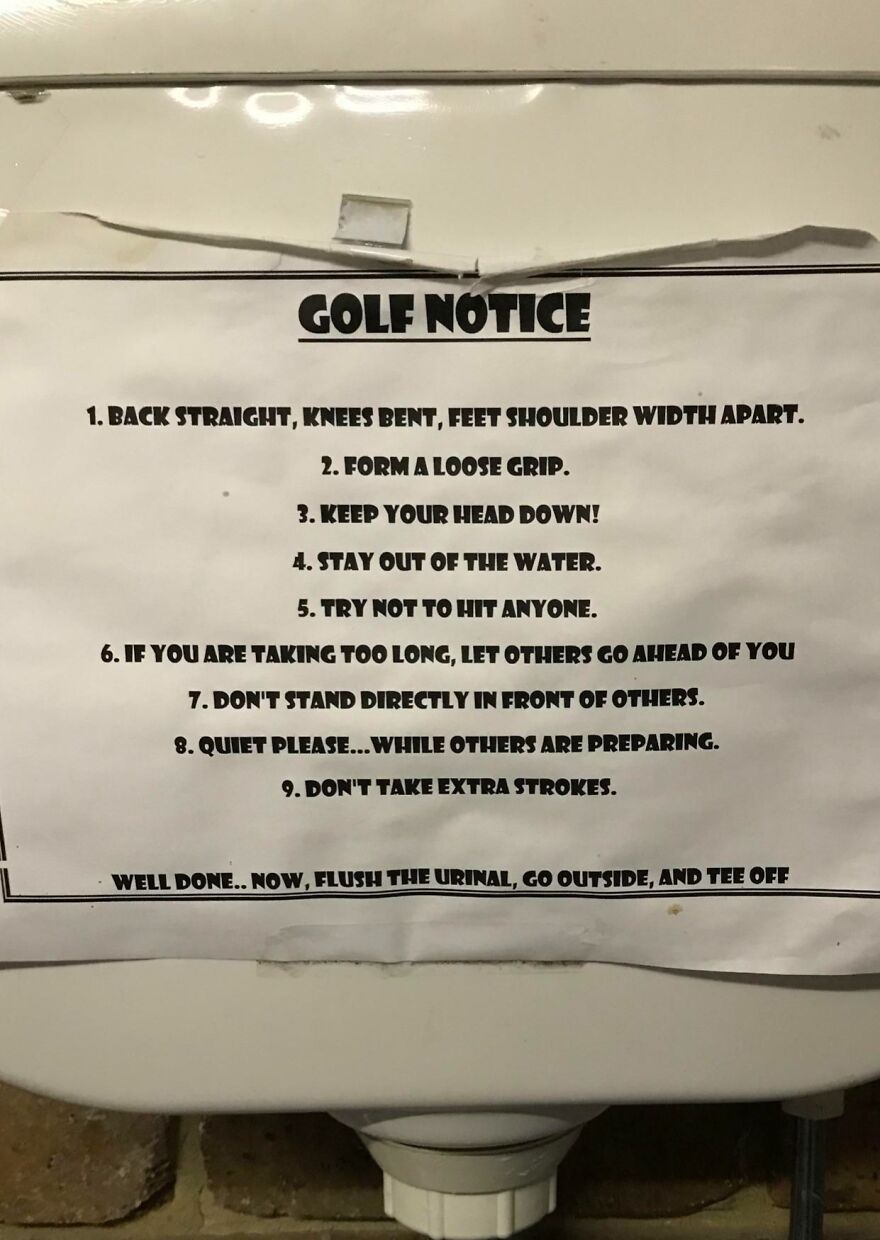 GOLF NOTICE
1. BACK STRAIGHT, KNEES BENT, FEET SHOULDER WIDTH APART.
2. FORM A LOOSE GRIP.
3. KEEP YOUR HEAD DOWN!
4. STAY OUT OF THE WATER.
5. TRY NOT TO HIT ANYONE.
6. IF YOU ARE TAKING TOO LONG, LET OTHERS GO AHEAD OF YOU
7. DON'T STAND DIRECTLY IN FRONT OF OTHERS.
8. QUIET PLEASE...WHILE OTHERS ARE PREPARING.
9. DON'T TAKE EXTRA STROKES.
WELL DONE.. NOW, FLUSH THE URINAL, GO OUTSIDE, AND TEE OFF